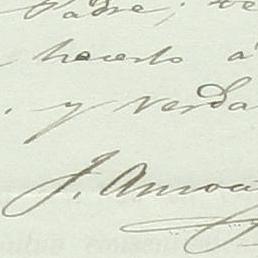 Padre; be
hacerlo á
y verda
J. Amoa